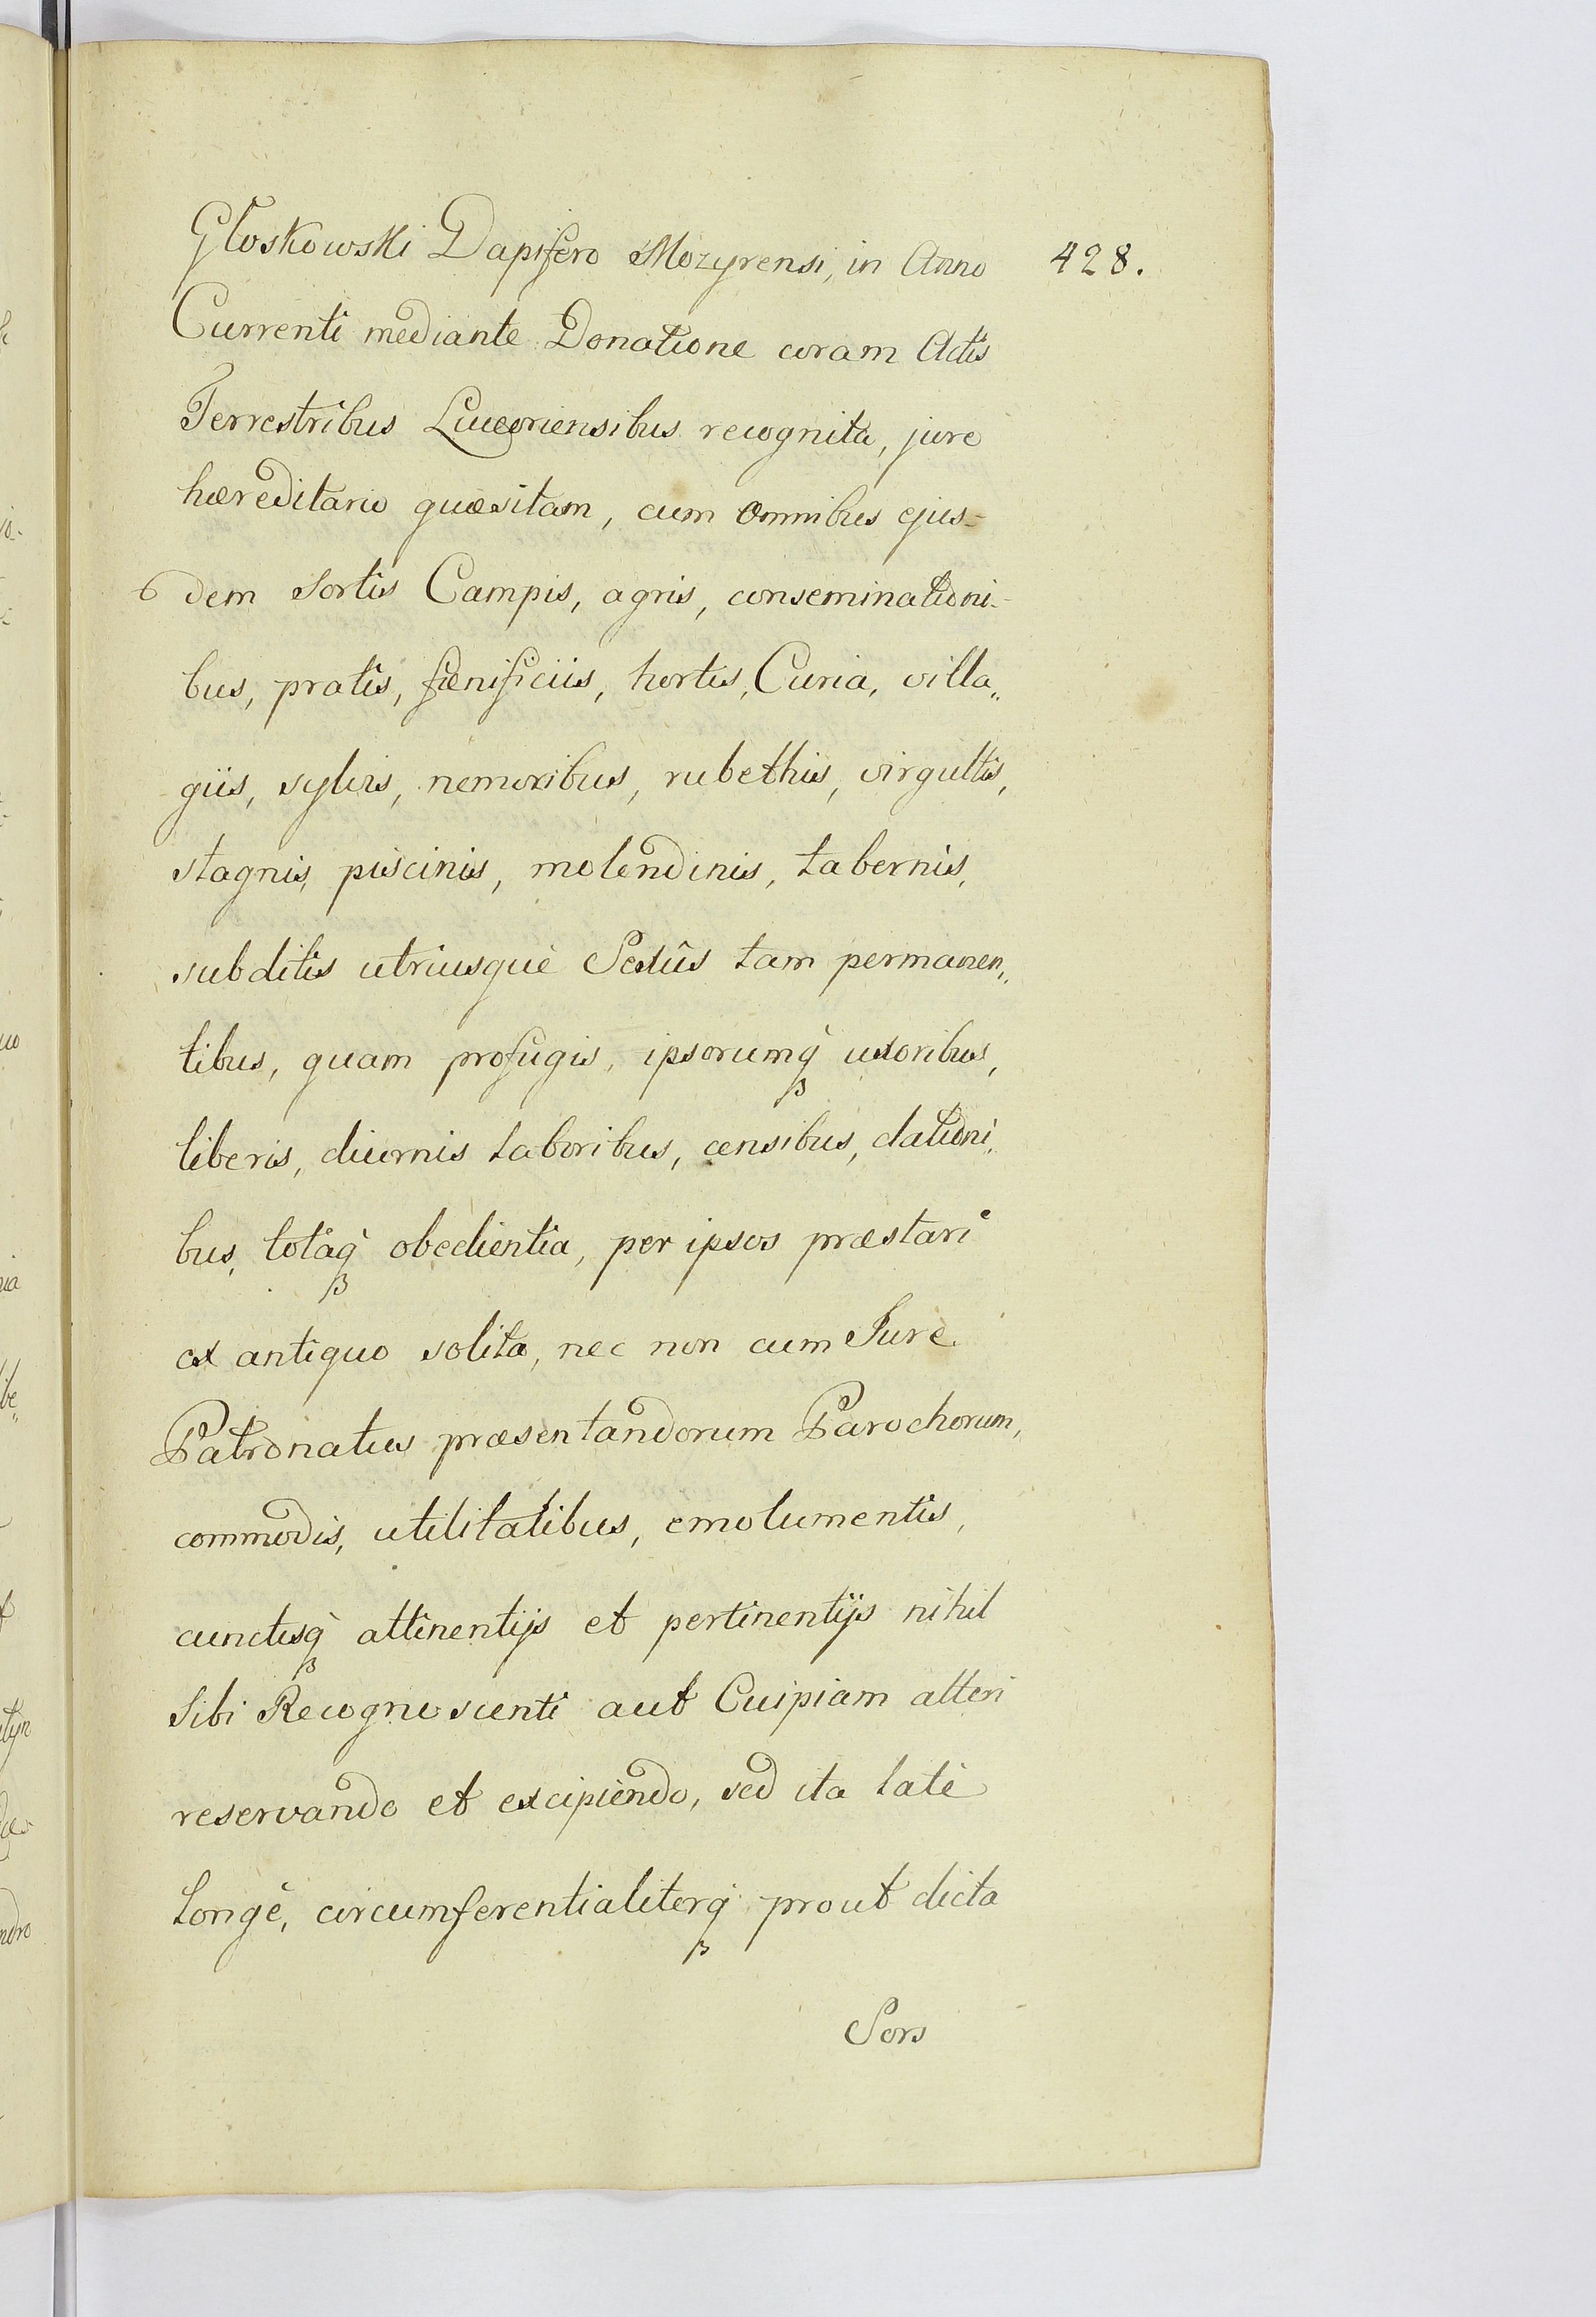 Głoskowski Dapifero Mozyrensi, in Anno 428.
Currenti mediante Donatione coram Actis
Terrestribus Luceoriensibus recognita, jure
hæreditario quæsitam, cum omnibus ejus-
dem Sortis Campis, agris, conseminationi-
bus, pratis, fænificiis, hortis, Curia, villa„
giis, sylvis, nemoribus, rubethis, virgultis,
stagnis, piscinis, molendinis, tabernis,
subditis utriusquè Sexûs tam permanen„
tibus, quam profugis, ipsorumq́ꝫ uxoribus,
liberis, diurnis laboribus, censibus, dationi„
bus, totâq́ꝫ obedientia, per ipsos præstari
ex antiquo solita, nec non cum Jure
Patronatus præsentandorum Parochorum,
commodis, utilitatibus, emolumentis,
cunctisq́ꝫ attinentijs et pertinentijs nihil
Sibi Recognoscenti aut Cuipiam alteri
reservando et excipièndo, sed ita latè
longè, circumferentialiterq́ꝫ prout dicta
Sors